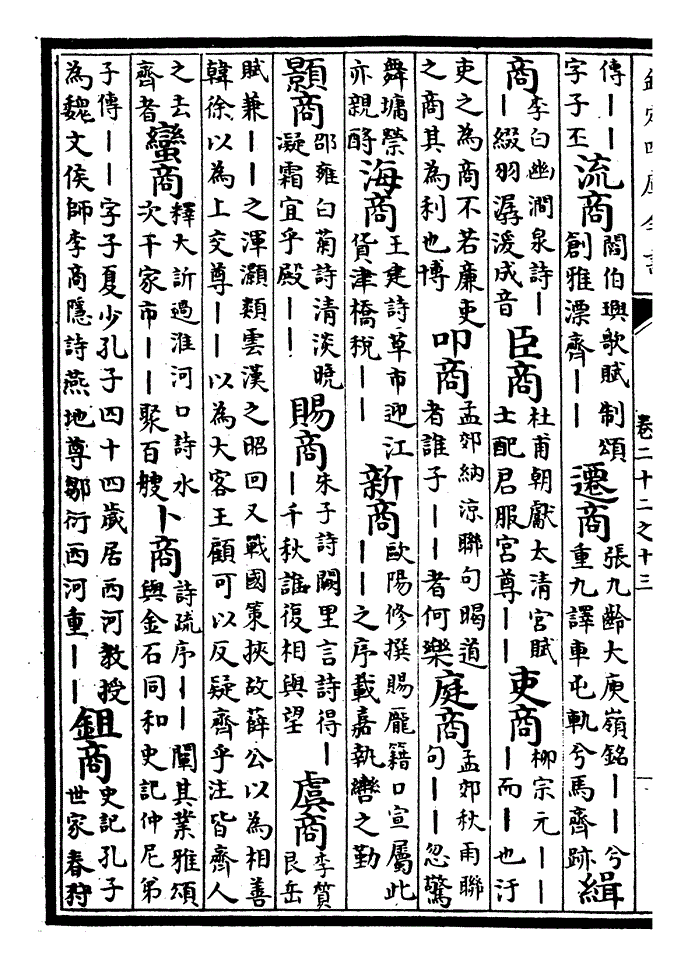 欽定四庫全書 卷二十二之十三
傳——字子丕流商閻伯璵歌賦制頌創雅漂齊——遷商張九齡大庾嶺銘——兮重九譯車屯軌兮馬齊跡緝
商李白幽澗泉詩——綴羽潺湲成音臣商杜甫朝獻太清宮賦士配君服宮尊——吏商柳宗元———而—也汙
吏之為商不若廉吏之商其為利也博叩商孟郊納涼聯句暍道者誰子——者何樂庭商孟郊秋雨聯句——忽驚
舞墉禜亦親酹海商王建詩草市迎江貨津橋稅——新商歐陽修撰賜龐籍口宣屬此——之序載嘉執轡之勤
顥商邵雍白菊詩清淡曉凝霜宜乎殿——賜商朱子詩闕里言詩得——千秋誰復相與望虞商李質艮岳
賦兼——之渾灝類雲漢之昭回又戰國策挾故薛公以為相善韓徐以為上交尊——以為大客王顧可以反疑齊乎注皆齊人
之去齊者蠻商釋大訢過淮河口詩水次千家市——聚百艘卜商詩疏序——闡其業雅頌與金石同和史記仲尼弟
子傳——字子夏少孔子四十四歲居西河教授為魏文侯師李商隱詩燕地尊鄒衍西河重——鉏商史記孔子世家春狩